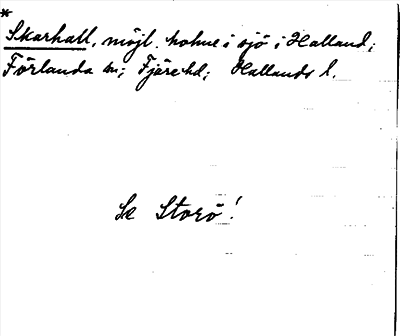 *
Skarhall, möjl. holme i sjö i Halland;
Förlanda sn; Fjäre hd; Hallands l.
Se Storö!